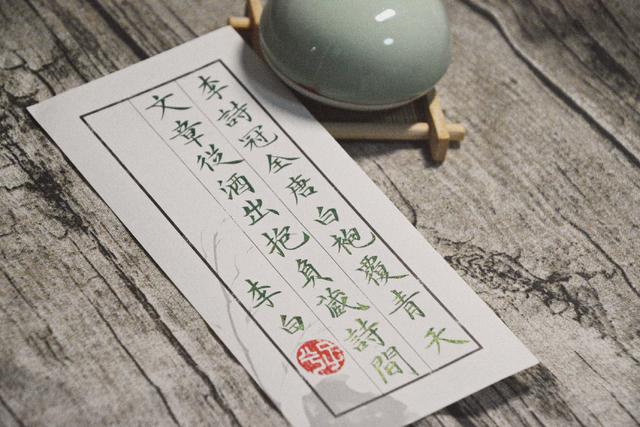 李詩冠全唐白袍覆青天
文章從酒出抱負藏詩間
李白